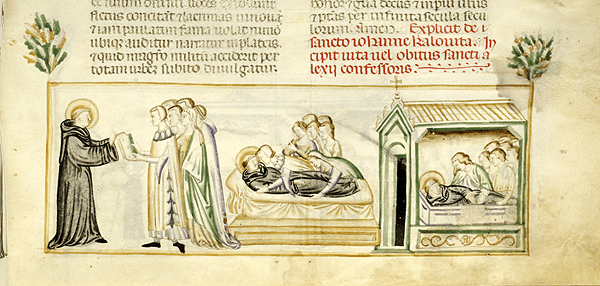 fletus concitat ⁊ lacrimas
nam fama uolat
ubiq; auditur narratur in plateis.
⁊ quid magno militi acciderit per
totam urbem subito diuulgatur.
decus ⁊
⁊ ptās per infinita secula secu
lorum. Amen. Explicit de
sancto iohanne kalouita. In
cipit uita uel obitus sancti a
lexii confessoris.